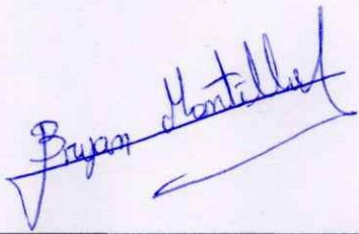 Bryan Montilla